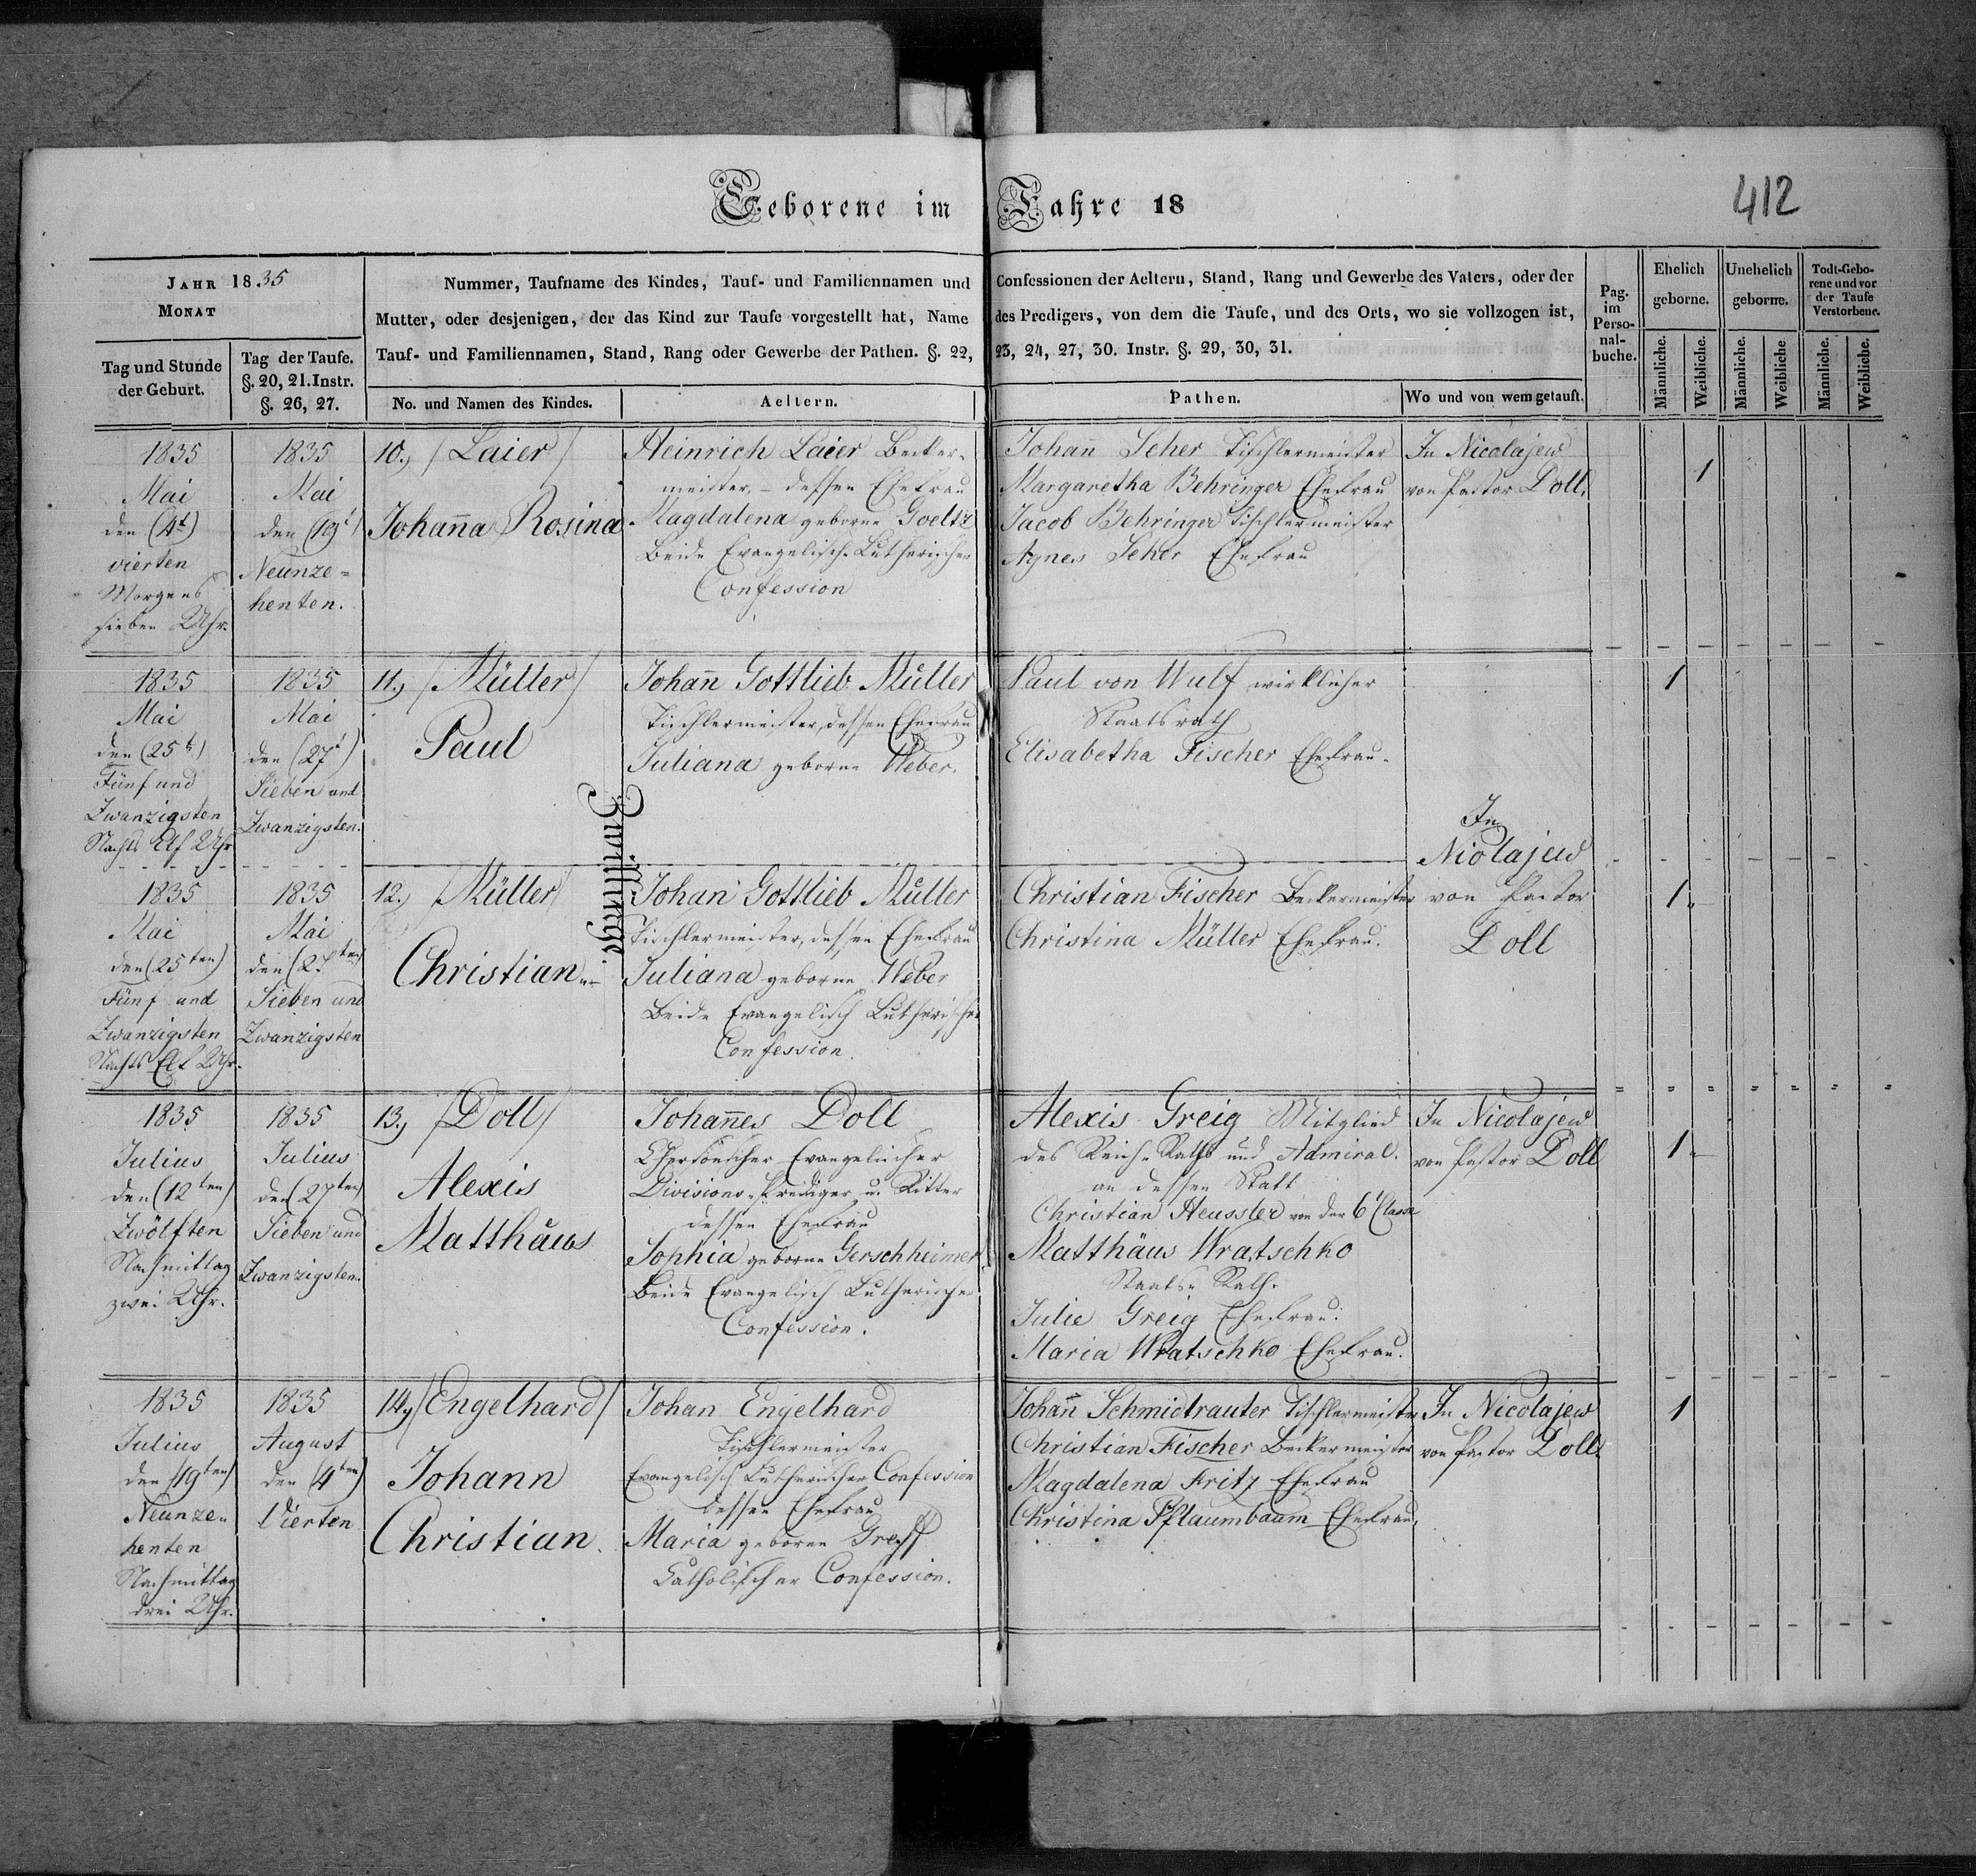 Geborene im Jahre 18
412
JAHR 1835
MONAT
Nummer, Taufname des Kindes, Tauf- und Familiennamen und Confessionen der Aeltern, Stand, Rang und Gewerbe des Vaters, oder der
Mutter, oder desjenigen, der das Kind zur Taufe vorgestellt hat, Name des Predigers, von dem die Taufe, und des Orts, wo sie vollzogen ist,
Tauf- und Familiennamen, Stand, Rang oder Gewerbe der Pathen. §. 22, 23, 24, 27, 30. Instr. §. 29, 30, 31.
Tag und Stunde
der Geburt.
Tag der Taufe.
§. 20, 21. Instr.
§. 26, 27.
No. und Namen des Kindes.
Aeltern.
Pathen.
Wo und von wem getauft.
Pag.
im
Perso-
nal-
buche.
Ehelich
geborne.
Unehelich
geborne.
Todt-Gebo-
rene und vor
der Taufe
Verstorbene.
Männliche.
Weibliche.
Männliche.
Weibliche
Männliche.
Weibliche.
1835
Mai
den (4t)
vierten
Morgens
sieben Uhr.
1835
Mai
den (19t)
Neunze=
henten.
10., /Laier/
Johanna Rosina
Heinrich Laier Becker-
meister, - dessen Ehefrau
Magdalena geborne Goeltz
Beide Evangelisch-Lutherischer
Confession
Johann Seher Tischlermeister
Margaretha Behringer Ehefrau
Jacob Behringer Tischlermeister
Agnes Seher Ehefrau
In Nicolajew
von Pastor Doll.
1
1835
Mai
den (25t)
Fünf und
Zwanzigsten
Nachts Elf Uhr
1835
Mai
den (27t)
Sieben und
Zwanzigsten.
11., /Müller/
Paul
Zwillinge.
Johann Gottlieb Müller
Tischlermeister, dessen Ehefrau
Juliana geborne Weber.
Paul von Wulf wirklicher
Staatsrath
Elisabetha Fischer Ehefrau.
In
Niolajew
von Pastor
Doll
1
1835
Mai
den (25ten)
Fünf und
Zwanzigsten
Nachts Elf Uhr.
1835
Mai
den (27ten)
Sieben und
Zwanzigsten
12., /Müller/
Christian
Johan Gottlieb Müller
Tischlermeister, dessen Ehefrau
Juliana geborne Weber
Beide Evangelisch Lutherischer
Confession.
Christian Fischer Beckermeister
Christina Müller Ehefrau.
1
1835
Julius
den (12ten)
Zwölften
Nachmittag
zwei Uhr.
1835
Julius
den (27ten)
Sieben und
Zwanzigsten.
13., /Doll/
Alexis
Matthäus
Johannes Doll
Chersonscher Evangelischer
Divisions-Prediger u. Ritter
dessen Ehefrau
Sophia geborne Gerschheimer
Beide Evangelisch Lutherischer
Confession.
Alexis Greig Mitglied
des Reichs-Raths und Admiral.
an dessen Statt
Christian Heussler von der 6t Classe
Matthäus Wratschko
Staats-Rath.
Julie Greig Ehefrau.
Maria Wratschko Ehefrau.
In Nicolajew
von Pastor Doll
1
1835
Julius
den (19ten)
Neunze=
henten
Nachmittag
drei Uhr.
1835
August
den (4ten)
Vierten
14., /Engelhard/
Johann
Christian.
Johan Engelhard
Tischlermeister
Evangelisch Lutherischer Confession
dessen Ehefrau
Maria geborne Greff
Catholischer Confession.
Johann Schmidtrauter Tischlermeister
Christian Fischer Beckermeister
Magdalena Fritz Ehefrau
Christina Pflaumbaum Ehefrau.
In Nicolajew
von Pastor Doll.
1